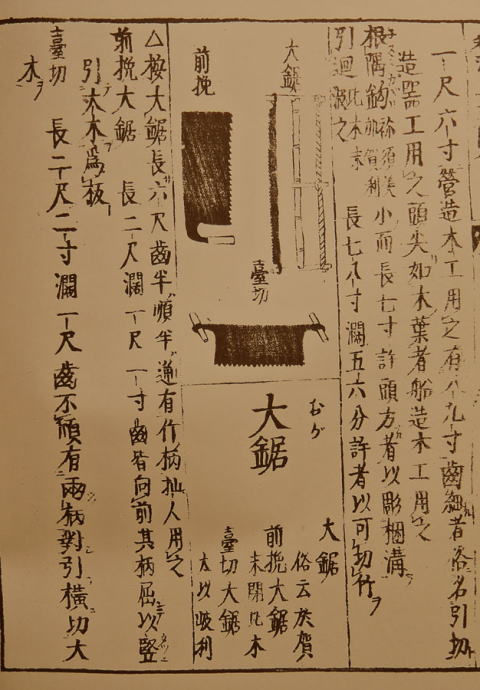 一尺六寸營造木工用之有八九寸齒細者俗名引切
造噐工用之頭尖如木葉者船造木工用之
根隅鈎 小而長七寸許頭方者以彫梱溝
引廻 長七八寸濶五六分許者以可切竹
むが
大鋸
大鋸
俗云於賀
前挽大鋸
未聞
臺切大鋸
太以岐利
大鋸
前挽
臺切
△按大鋸長六尺齒半順半逆有竹柄抛人用之
前挽大鋸 長二尺濶一尺一寸齒皆向前其柄屈以竪
引大木爲板
臺切 長二尺二寸濶一尺齒不順有兩柄對引橫切大
木